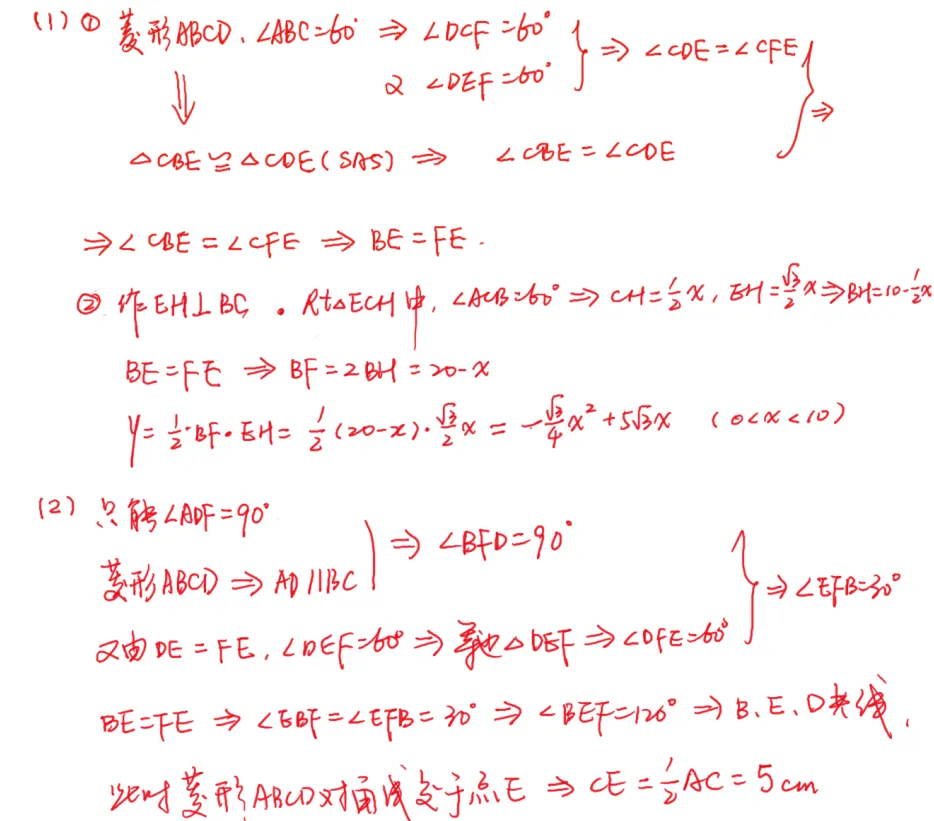 (1) ① 菱形ABCD、∠ABC=60° ⇒ ∠DCF=60° } ⇒ ∠CDE=∠CFE }
又 ∠DEF=60°
⇓ ⇒
△CBE≌△CDE(SAS) ⇒ ∠CBE=∠CDE
⇒∠CBE=∠CFE ⇒ BE=FE.
② 作EH⊥BC。Rt△ECH中,∠ACB=60° ⇒ CH=1/2x, EH=√3/2x⇒BH=10-1/2x
BE=FE ⇒ BF=2BH=20-x
y=1/2·BF·EH=1/2(20-x)·√3/2x=-√3/4x²+5√3x (0<x<10)
(2) 只能∠ADF=90°
⇒ ∠BFD=90°
菱形ABCD⇒AD∥BC
⇒∠EFB=30°
又由DE=FE,∠DEF=60°⇒等边△DEF⇒∠DFE=60°
BE=FE ⇒ ∠EBF=∠EFB=30° ⇒ ∠BEF=120° ⇒ B、E、D共线,
此时菱形ABCD对角线交于点E ⇒ CE=1/2AC=5cm